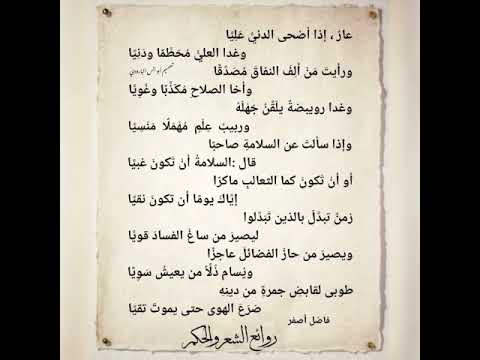 عارٌ ، إذا أضحى الدنيُّ عَلِيًّا
وغدا العليُّ مُحَطَّمًا ودَنِيًّا
ورأيتَ مَنْ ألِفَ النفاقَ مُصَدَّقًا
وأخا الصلاحِ مُكَذَّبًا وغُوِيًّا
وغدا رويبضةٌ يلَقِّنُ جَهلَهُ
وربيبُ عِلْمٍ مُهْمَلًا مَنْسِيًّا
وإذا سألتَ عن السلامةِ صاحبًا
قال :السلامةُ أنْ تكونَ غبيًّا
أو أنْ تكونَ كما الثعالبِ ماكرًا
إيّاكَ يومًا أن تكونَ نقيًّا
زمنٌ تبدّلَ بالذين تَبَدّلوا
ليصيرَ من ساغَ الفسادَ قويًّا
ويصيرَ من حازَ الفضائلَ عاجزًا
ويُسام ذُلًّا من يعيشُ سَوِيًّا
طوبى لقابضِ جمرةٍ من دينِهِ
صَرَعَ الهوى حتى يموتَ تقيًّا
فاضل أصفر
روائع الشعر والحكم